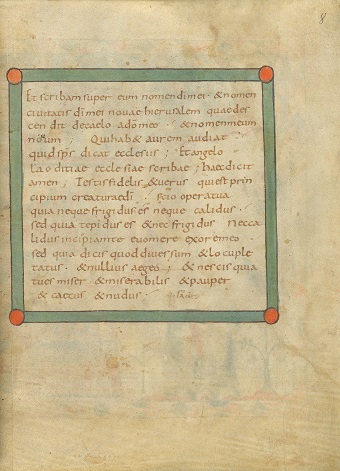 8
Et scribam super eum nomen dī mei · & nomen
ciuitatis dī mei nouae hierusalem quae des
cendit decaelo adō meo · & nomen meum
nouum ; Qui hab& aurem audiat
quid sp̄s dicat ecclesiis ; Et angelo
laoditiae ecclesiae scribae ; haec dicit
amen ; Testis fidelis & uerus qui est prin
cipium creaturae dī · scio opera tua
quia neque frigidus es neque calidus ·
sed quia tepidus es & nec frigidus nec ca
lidus incipiam te euomere ex ore meo ·
sed quia dicis quod diues sum & locuple
tatus · & nullius aegeo ; & nescis quia
tu es miser & miserabilis & pauper
& caecus & nudus ·